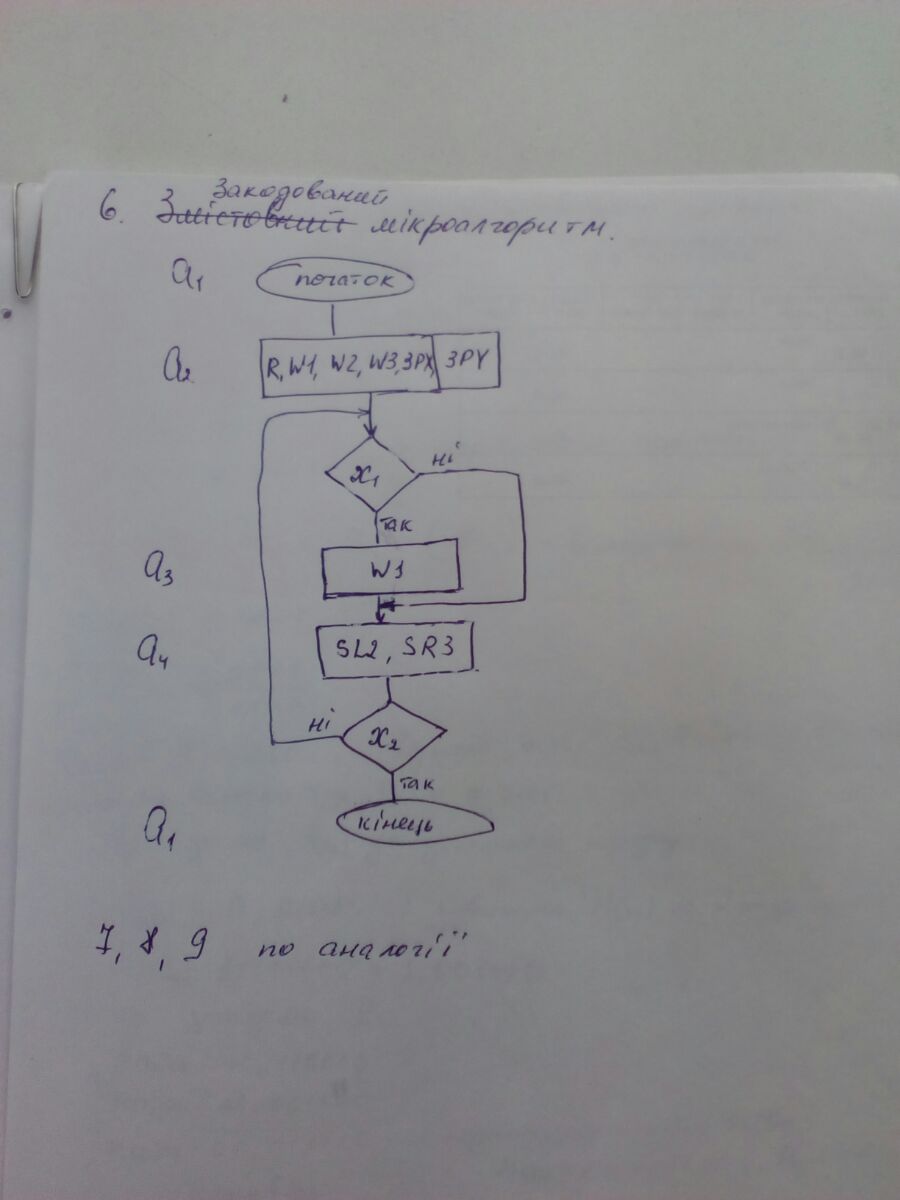 6. Закодований
Змістовний мікроалгоритм.
a₁ початок
a₂ R, W1, W2, W3, ЗРХ, ЗРУ
x₁ ні
так
a₃ W1
a₄ SL2, SR3
ні x₂
так
a₁ кінець
7, 8, 9 по аналогії